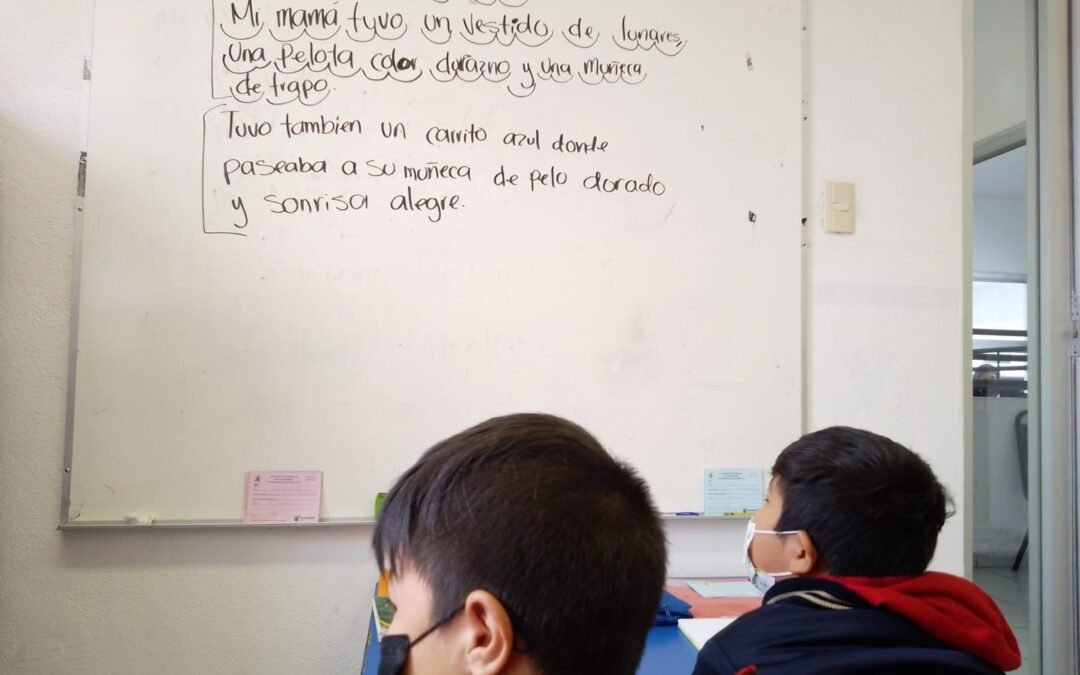 Mi mamá tuvo un vestido de lunares,
una pelota color durazno y una muñeca
de trapo.
Tuvo tambien un carrito azul donde
paseaba a su muñeca de pelo dorado
y sonrisa alegre.